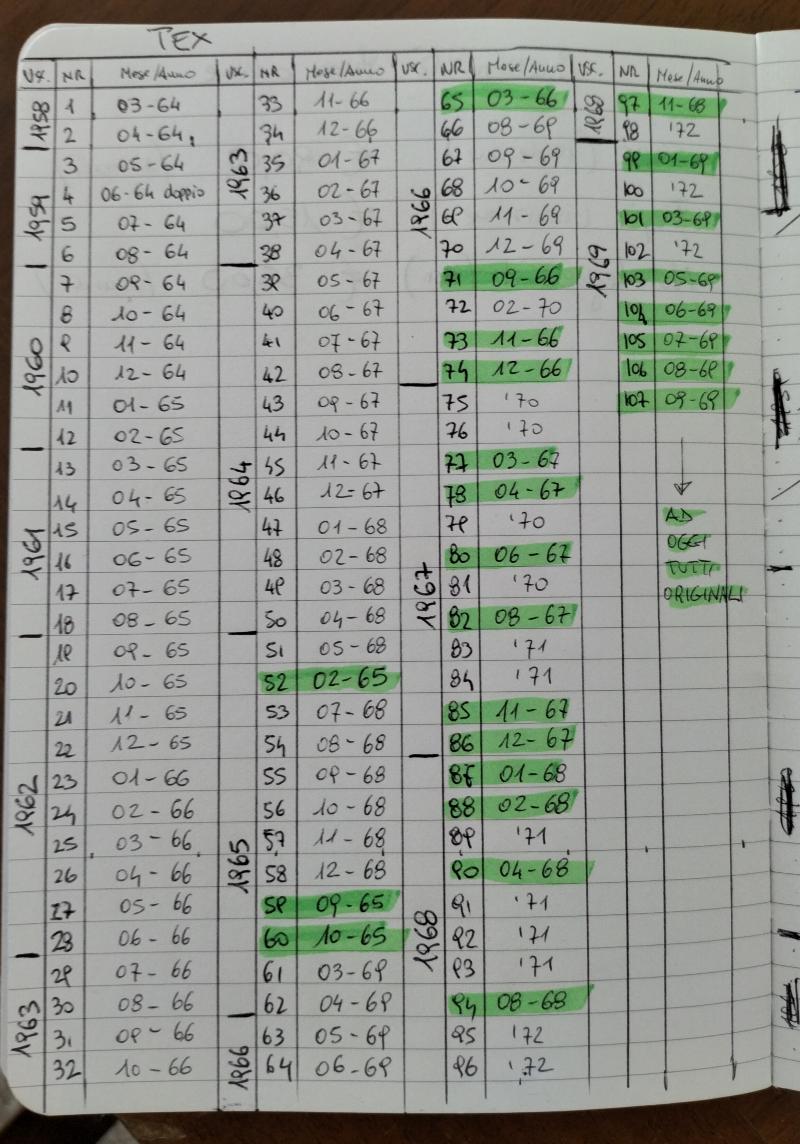 TEX
USC. NR Mese/Anno
1958
1 03-64
2 04-64
1959
3 05-64
4 06-64 doppio
5 07-64
6 08-64
1960
7 09-64
8 10-64
9 11-64
10 12-64
11 01-65
12 02-65
1961
13 03-65
14 04-65
15 05-65
16 06-65
17 07-65
18 08-65
1962
19 09-65
20 10-65
21 11-65
22 12-65
23 01-66
24 02-66
25 03-66
26 04-66
27 05-66
28 06-66
1963
29 07-66
30 08-66
31 09-66
32 10-66
USC. NR Mese/Anno
1963
33 11-66
34 12-66
35 01-67
36 02-67
37 03-67
38 04-67
1964
39 05-67
40 06-67
41 07-67
42 08-67
43 09-67
44 10-67
45 11-67
46 12-67
47 01-68
48 02-68
49 03-68
50 04-68
1965
51 05-68
52 02-65
53 07-68
54 08-68
55 09-68
56 10-68
57 11-68
58 12-68
59 09-65
60 10-65
61 03-69
62 04-69
1966
63 05-69
64 06-69
USC. NR Mese/Anno
1966
65 03-66
66 08-69
67 09-69
68 10-69
69 11-69
70 12-69
71 09-66
72 02-70
73 11-66
74 12-66
1967
75 '70
76 '70
77 03-67
78 04-67
79 '70
80 06-67
81 '70
82 08-67
83 '71
84 '71
85 11-67
86 12-67
1968
87 01-68
88 02-68
89 '71
90 04-68
91 '71
92 '71
93 '71
94 08-68
95 '72
96 '72
USC. NR Mese/Anno
1968
97 11-68
98 '72
1969
99 01-69
100 '72
101 03-69
102 '72
103 05-69
104 06-69
105 07-69
106 08-69
107 09-69
AD
OGGI
TUTTI
ORIGINALI